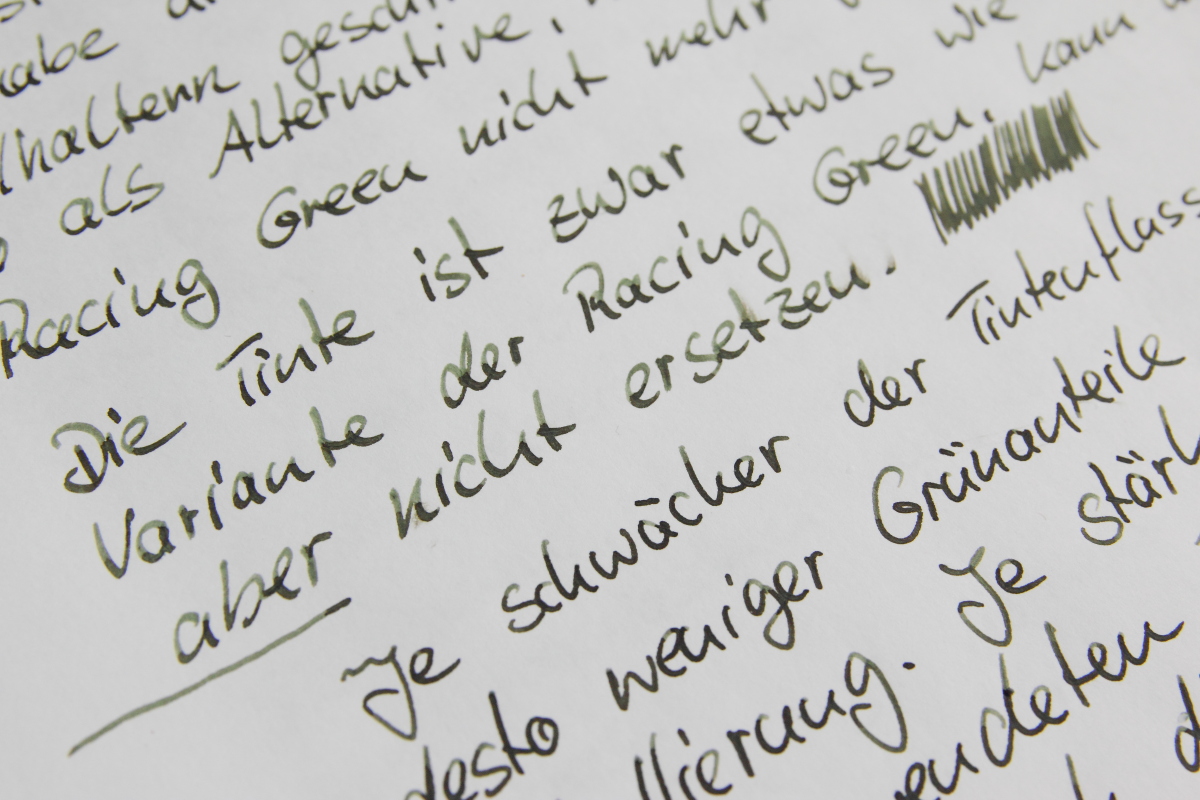 habe
haltenn gesch
als Alternative,
Racing Green nicht mehr
Die Tinte ist zwar etwas wie
Variante der Racing Green, kann
aber nicht ersetzen.
Je schwächer der Tintenflass
desto weniger Grünanteile
llierung. Je stärk
endeten